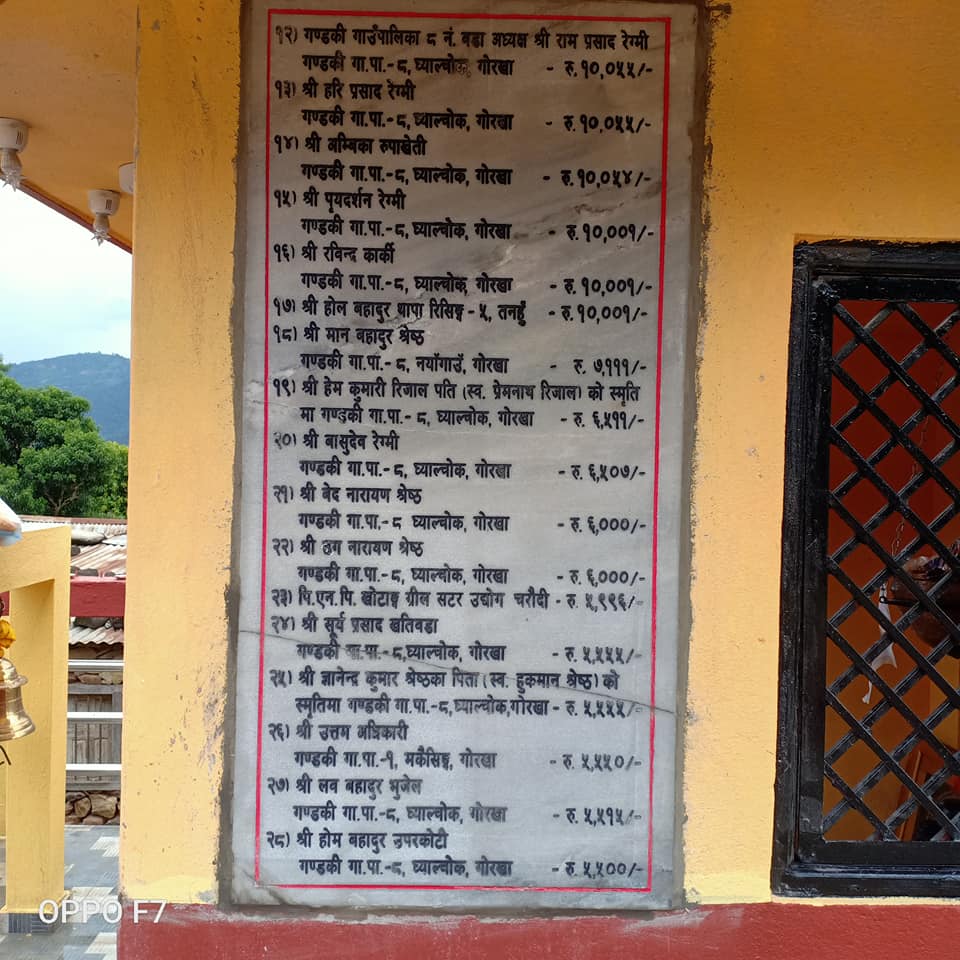 १२) गण्डकी गाउँपालिका ८ नं. वडा अध्यक्ष श्री राम प्रसाद रेग्मी
गण्डकी गा.पा.-८, घ्याल्चोक, गोरखा - रु.१०,०५५/-
१३) श्री हरि प्रसाद रेग्मी
गण्डकी गा.पा.-८, घ्याल्चोक, गोरखा - रु.१०,०५५/-
१४) श्री अम्बिका रुपाखेती
गण्डकी गा.पा.-८, घ्याल्चोक, गोरखा - रु.१०,०५४/-
१५) श्री पृयदर्शन रेग्मी
गण्डकी गा.पा.-८, घ्याल्चोक, गोरखा - रु.१०,००१/-
१६) श्री रविन्द्र कार्की
गण्डकी गा.पा.-८, घ्याल्चोक, गोरखा - रु.१०,००१/-
१७) श्री होल बहादुर थापा रिसिङ्ग - ५, तनहुँ - रु.१०,००१/-
१८) श्री मान बहादुर श्रेष्ठ
गण्डकी गा.पा.-८, नयाँगाउँ, गोरखा - रु. ७,१११/-
१९) श्री हेम कुमारी रिजाल पति (स्व. प्रेमनाथ रिजाल) को स्मृति
मा गण्डकी गा.पा.-८, घ्याल्चोक, गोरखा - रु. ६,५११/-
२०) श्री बासुदेव रेग्मी
गण्डकी गा.पा.-८, घ्याल्चोक, गोरखा - रु. ६,५०७/-
२१) श्री बेद नारायण श्रेष्ठ
गण्डकी गा.पा.-८ घ्याल्चोक, गोरखा - रु. ६,०००/-
२२) श्री उग नारायण श्रेष्ठ
गण्डकी गा.पा.-८, घ्याल्चोक, गोरखा - रु. ६,०००/-
२३) पि.एन.पि. खोटाङ्ग ग्रील सटर उद्योग चरौदी - रु. ५,९९६/-
२४) श्री सूर्य प्रसाद खतिवडा
गण्डकी गा.पा.-८,घ्याल्चोक, गोरखा - रु. ५,५५५/-
२५) श्री ज्ञानेन्द्र कुमार श्रेष्ठका पिता (स्व. हुकमान श्रेष्ठ) को
स्मृतिमा गण्डकी गा.पा.-८,घ्याल्चोक,गोरखा - रु. ५,५५५/-
२६) श्री उत्तम अधिकारी
गण्डकी गा.पा.-१, मकैसिङ्ग, गोरखा - रु. ५,५५०/-
२७) श्री लव बहादुर भुजेल
गण्डकी गा.पा.-८, घ्याल्चोक, गोरखा - रु. ५,५१५/-
२८) श्री होम बहादुर उपरकोटी
गण्डकी गा.पा.-८, घ्याल्चोक, गोरखा - रु. ५,५००/-
OPPO F7